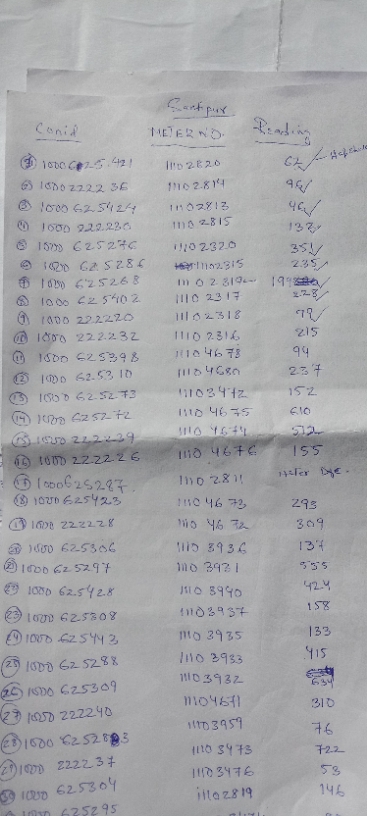 Conid METER NO. Reading
① 1000625421 11102820 62 ✓
② 1000222236 11102814 96 ✓
③ 1000625424 11102813 46 ✓
④ 1000222230 11102815 132
⑤ 1000625276 11102320 351 ✓
⑥ 1000625286 11102315 235 ✓
⑦ 1000625268 11102319
⑧ 1000625402 11102317 228 ✓
⑨ 1000222220 11102318 79 ✓
⑩ 1000222232 11102316 215
⑪ 1000625398 11104678 94
⑫ 1000625310 11104680 237
⑬ 1000625273 11103472 152
⑭ 1000625272 11104675 610
⑮ 1000222229 11104674 512
⑯ 1000222226 11104676 155
⑰ 1000625287 11102811
⑱ 1000625423 11104673 293
⑲ 1000222228 11104672 309
⑳ 1000625306 11103936 137
㉑ 1000625297 11103931 555
㉒ 1000625428 11103940 424
㉓ 1000625308 11103937 158
㉔ 1000625443 11103935 133
㉕ 1000625288 11103933 415
㉖ 1000625309 11103932 634
㉗ 1000222240 11104671 310
㉘ 1000625283 11103959 76
㉙ 1000222237 11103473 722
㉚ 1000625304 11103476 53
625295 11102819 146